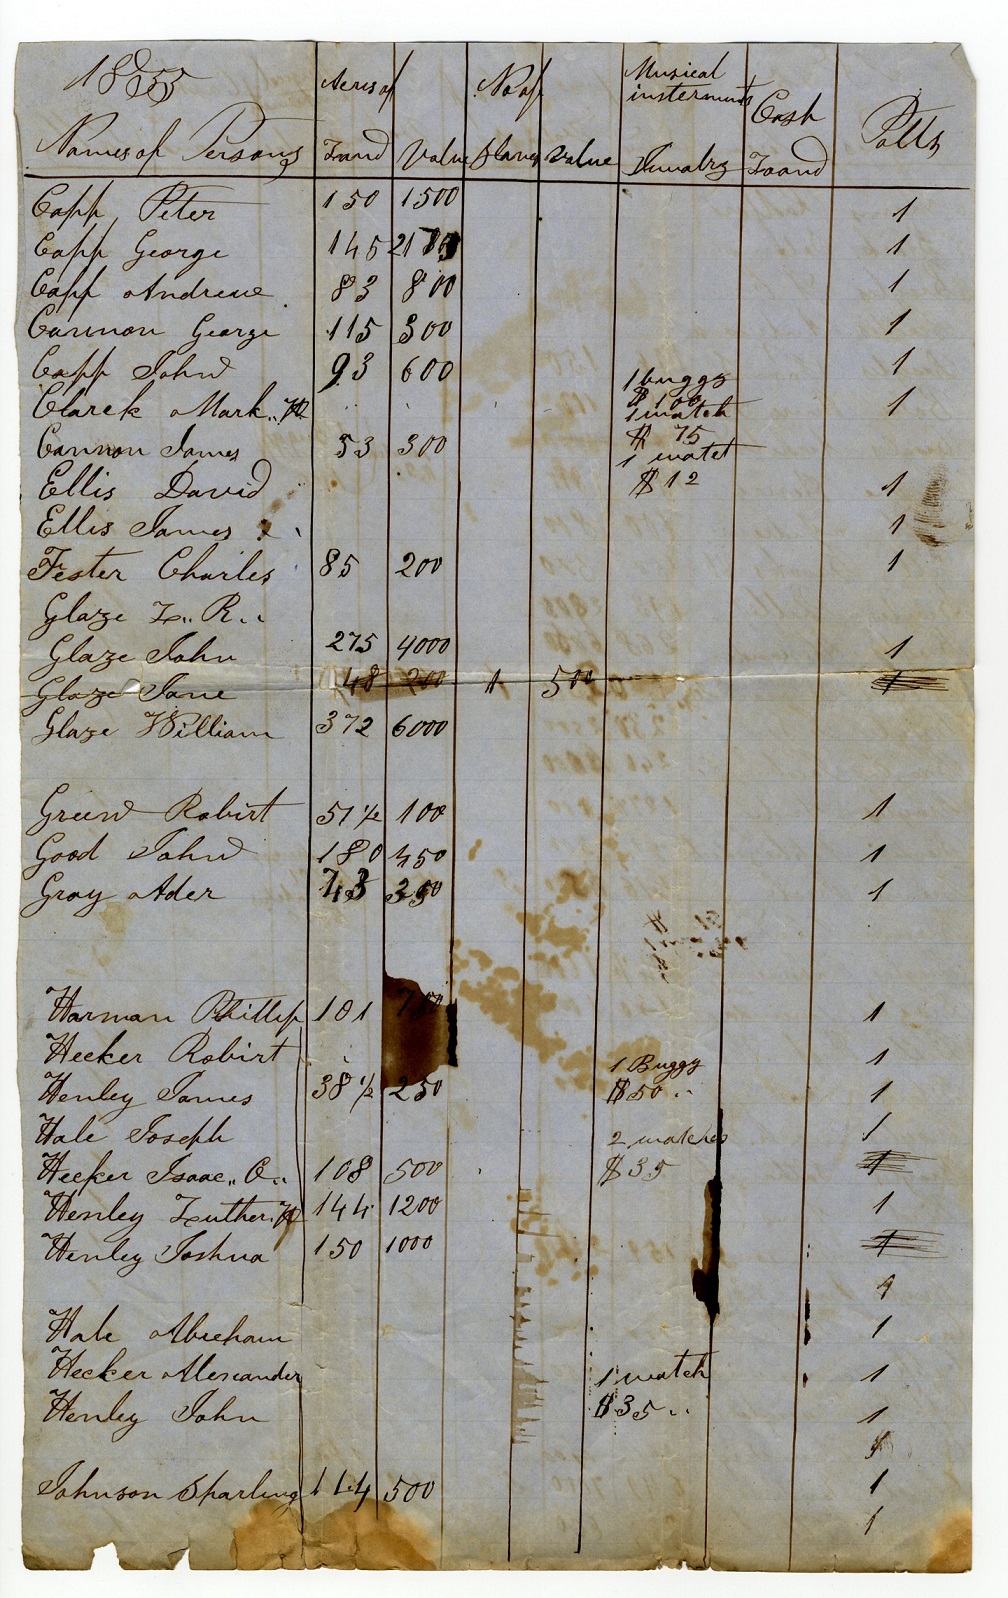 1855 Acres of No of Musical
insterments Cash Polls
Names of Persons Land Value Slaves Value Land
Capp Peter 150 1500 1
Capp George 145 1
Capp Andrew 83 800 1
Cannon George 115 300 1
Capp John 93 600 1
1 buggy
$100
Clarck Mark 1 watch 1
$ 75
Cannon James 53 300 1 watch
Ellis David $12 1
Ellis James 1
Fester Charles 85 200 1
Glaze L.. R..
Glaze John 275 4000 1
Glaze Jane 148 200 1 500 1
Glaze William 372 6000
Green Robirt 51 1/2 100 1
Good John 180 450 1
Gray Ader 43 350 1
Harman Phillip 101 1
Hecker Robirt 1 Buggy 1
Henley James 38 1/2 250 $50 .. 1
Hale Joseph 2 watches 1
Hecker Isaac.. C.. 108 500 $35 1
Henley Luther 144 1200 1
Henley Joshua 150 1000 1
1
Hale Abreham 1
Hecker Alexander 1 watch 1
Henley John $35 .. 1
1
Johnson Sparling 114 500 1
1